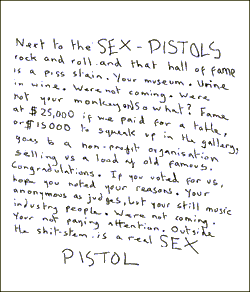 Next to the SEX-PISTOLS
rock and roll and that hall of fame
is a piss stain. Your museum. Urine
in wine. Were not coming. Were
not your monkeys so what? Fame
at $25,000 if we paid for a table,
or $15000 to squeak up in the gallery,
goes to a non-profit organisation
selling us a load of old famous.
Congradulations. If you voted for us,
hope you noted your reasons. Your
anonymous as judges, but your still music
industry people. Were not coming.
Your not paying attention. Outside
the shit-stem is a real SEX
PISTOL